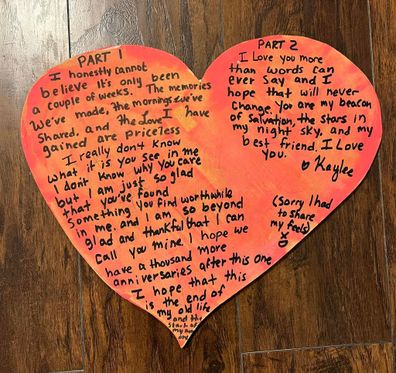 PART 1
I honestly cannot
believe it's only been
a couple of weeks. The memories
we've made, the mornings we've
shared, and the love I have
gained are priceless
I really don't know
what it is you see in me
I don't know why you care
but I am just so glad
that you've found
something you find worthwhile
in me. and I am so beyond
glad and thankful that I can
call you mine. I hope we
have a thousand more
anniversaries after this one
I hope that this
is the end of
my old life
and the
start of
my new
one
PART 2
I Love you more
than words can
ever say and I
hope that will never
change. You are my beacon
of salvation, the stars in
my night sky, and my
best friend. I Love
you.
♡ Kaylee
(sorry I had
to share
my feels)